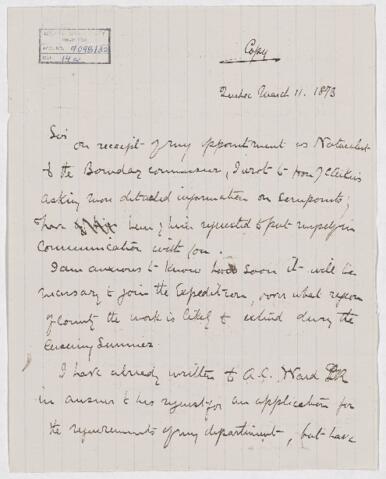 Copy
Quebec March 11. 1873
Sir
on receipt of my appointment as Naturalist
to the Boundary commission, I wrote to Hon J C Aikins
asking more detailed information on some points,
have been requested to put myself in
communication with you.
I am anxious to know how soon it will be
necessary to join the Expedition, over what region
of country the work is likely to extend during the
Ensuing Summer.
I have already written to A.C. Ward
in answer to his request for an application for
the requirements of my department, but have